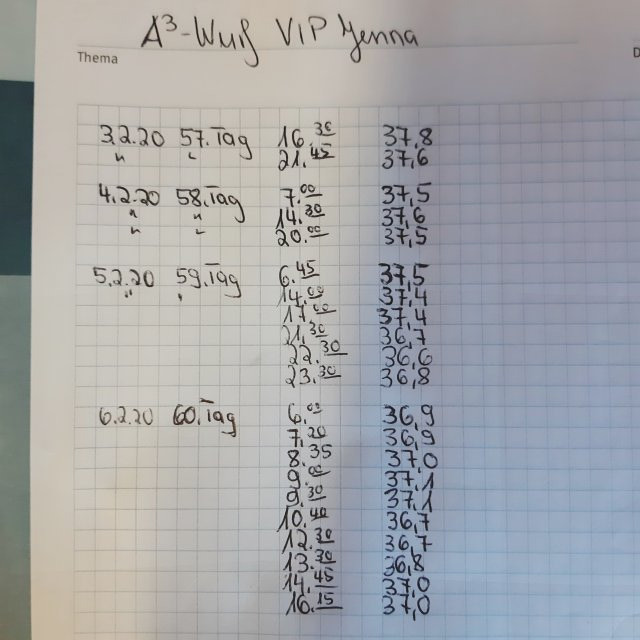 A³-Wurf VIP Jenna
Thema
3.2.20 57.Tag 16.30 37,8
" " 21.45 37,6
4.2.20 58.Tag 7.00 37,5
" " 14.30 37,6
" " 20.00 37,5
5.2.20 59.Tag 6.45 37,5
" " 14.00 37,4
17.00 37,4
21.30 36,7
22.30 36,6
23.30 36,8
6.2.20 60.Tag 6.00 36,9
7.20 36,9
8.35 37,0
9.00 37,1
9.30 37,1
10.40 36,7
12.30 36,7
13.30 36,8
14.45 37,0
16.15 37,0